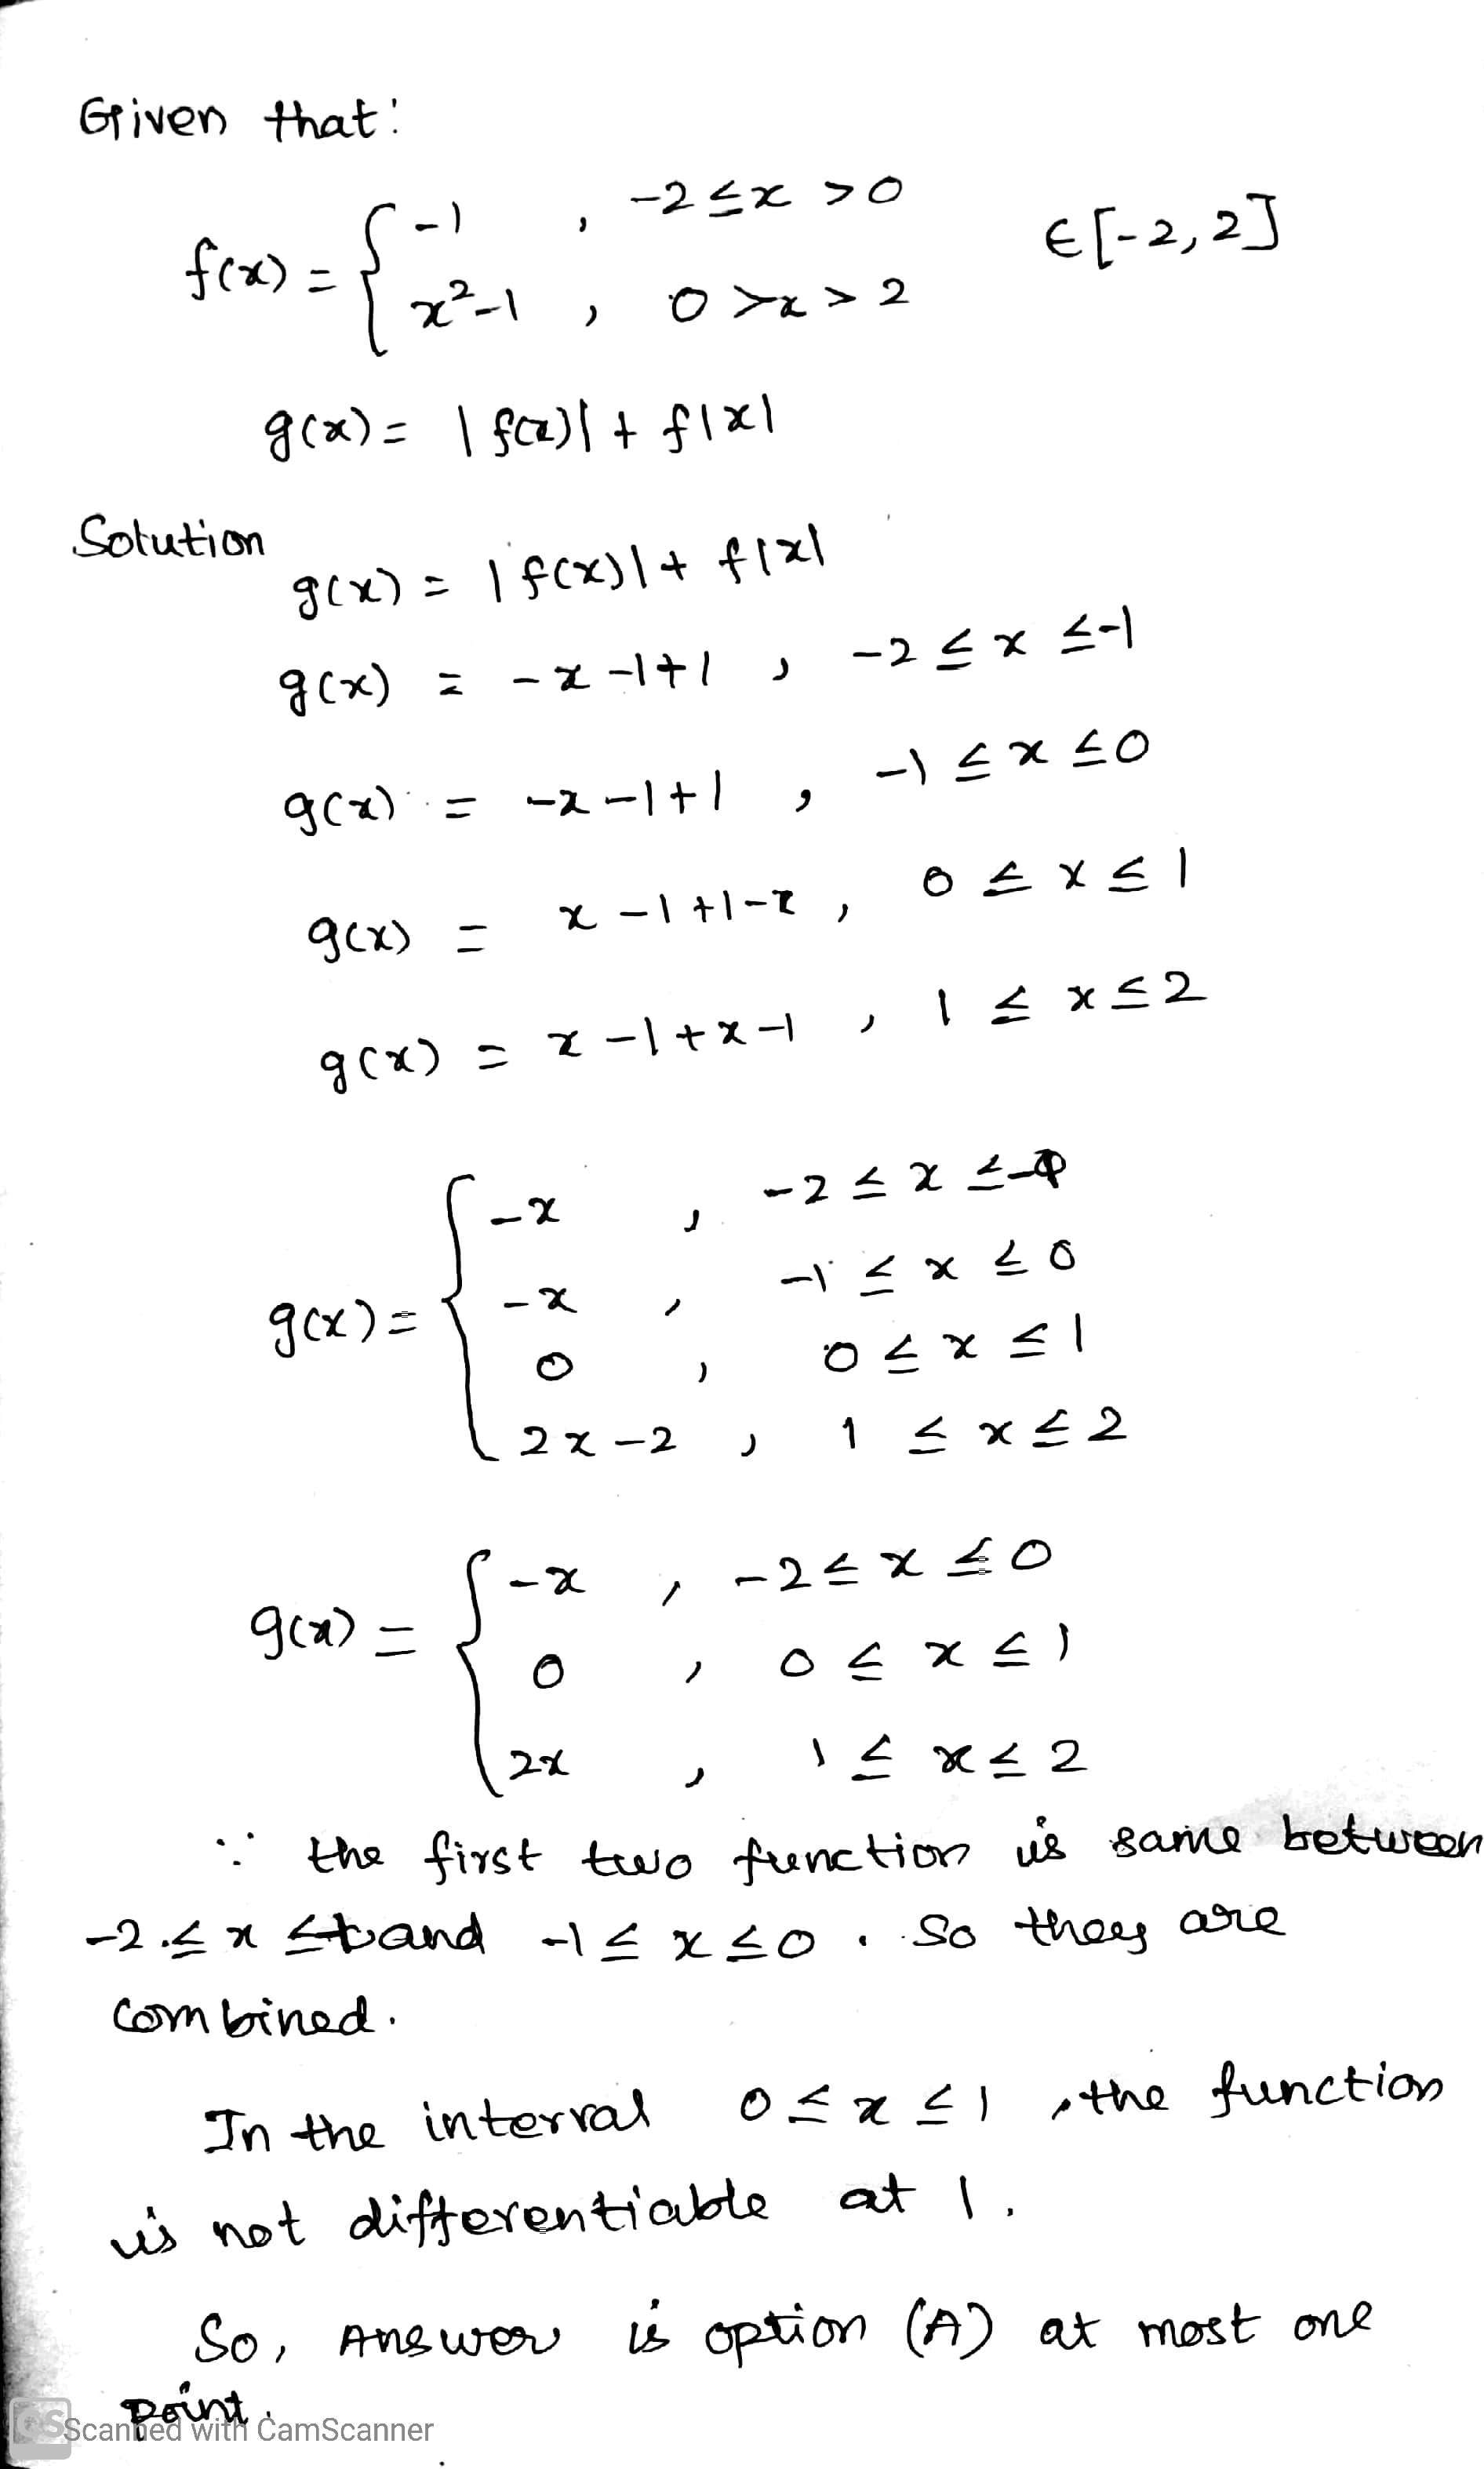 Given that:
f(x) = { -1 , -2 ≤ x > 0
x² - 1 , 0 > x > 2
∈ [-2, 2]
g(x) = |f(x)| + f|x|
Solution
g(x) = |f(x)| + f|x|
g(x) = -x -1+1 , -2 ≤ x ≤ -1
g(x) = -x -1+1 , -1 ≤ x ≤ 0
g(x) = x -1 +1-x , 0 ≤ x ≤ 1
g(x) = x -1 + x -1 , 1 ≤ x ≤ 2
g(x) = { -x , -2 ≤ x ≤
-x , -1 ≤ x ≤ 0
0 , 0 ≤ x ≤ 1
2x - 2 , 1 ≤ x ≤ 2
g(x) = { -x , -2 ≤ x ≤ 0
0 , 0 ≤ x ≤ 1
2x , 1 ≤ x ≤ 2
∵ the first two function is same between
-2 ≤ x ≤ and -1 ≤ x ≤ 0 . So they are
combined.
In the interval 0 ≤ x ≤ 1 , the function
is not differentiable at 1.
So, Answer is option (A) at most one
point.
CS Scanned with CamScanner